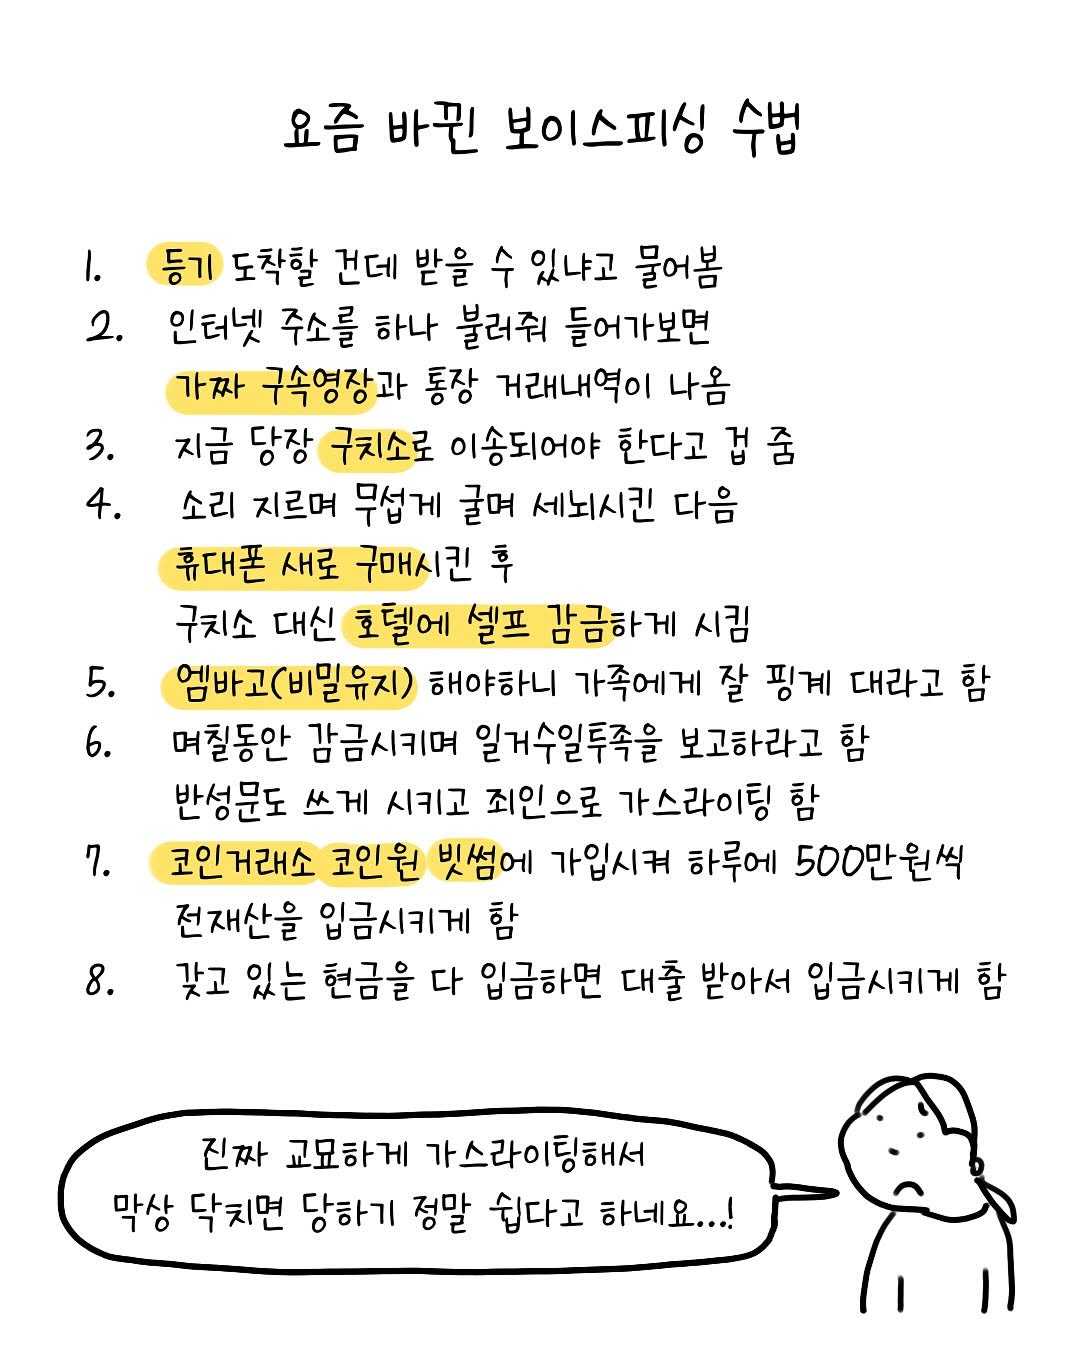 요즘 바뀐 보이스피싱 수법
1. 등기 도착할 건데 받을 수 있냐고 물어봄
2. 인터넷 주소를 하나 불러줘 들어가보면
가짜 구속영장과 통장 거래내역이 나옴
3. 지금 당장 구치소로 이송되어야 한다고 겁 줌
4. 소리 지르며 무섭게 굴며 세뇌시킨 다음
휴대폰 새로 구매시킨 후
구치소 대신 호텔에 셀프 감금하게 시킴
5. 엠바고(비밀유지) 해야하니 가족에게 잘 핑계 대라고 함
6. 며칠동안 감금시키며 일거수일투족을 보고하라고 함
반성문도 쓰게 시키고 죄인으로 가스라이팅 함
7. 코인거래소 코인원 빗썸에 가입시켜 하루에 500만원씩
전재산을 입금시키게 함
8. 갖고 있는 현금을 다 입금하면 대출 받아서 입금시키게 함
진짜 교묘하게 가스라이팅해서
막상 닥치면 당하기 정말 쉽다고 하네요...!